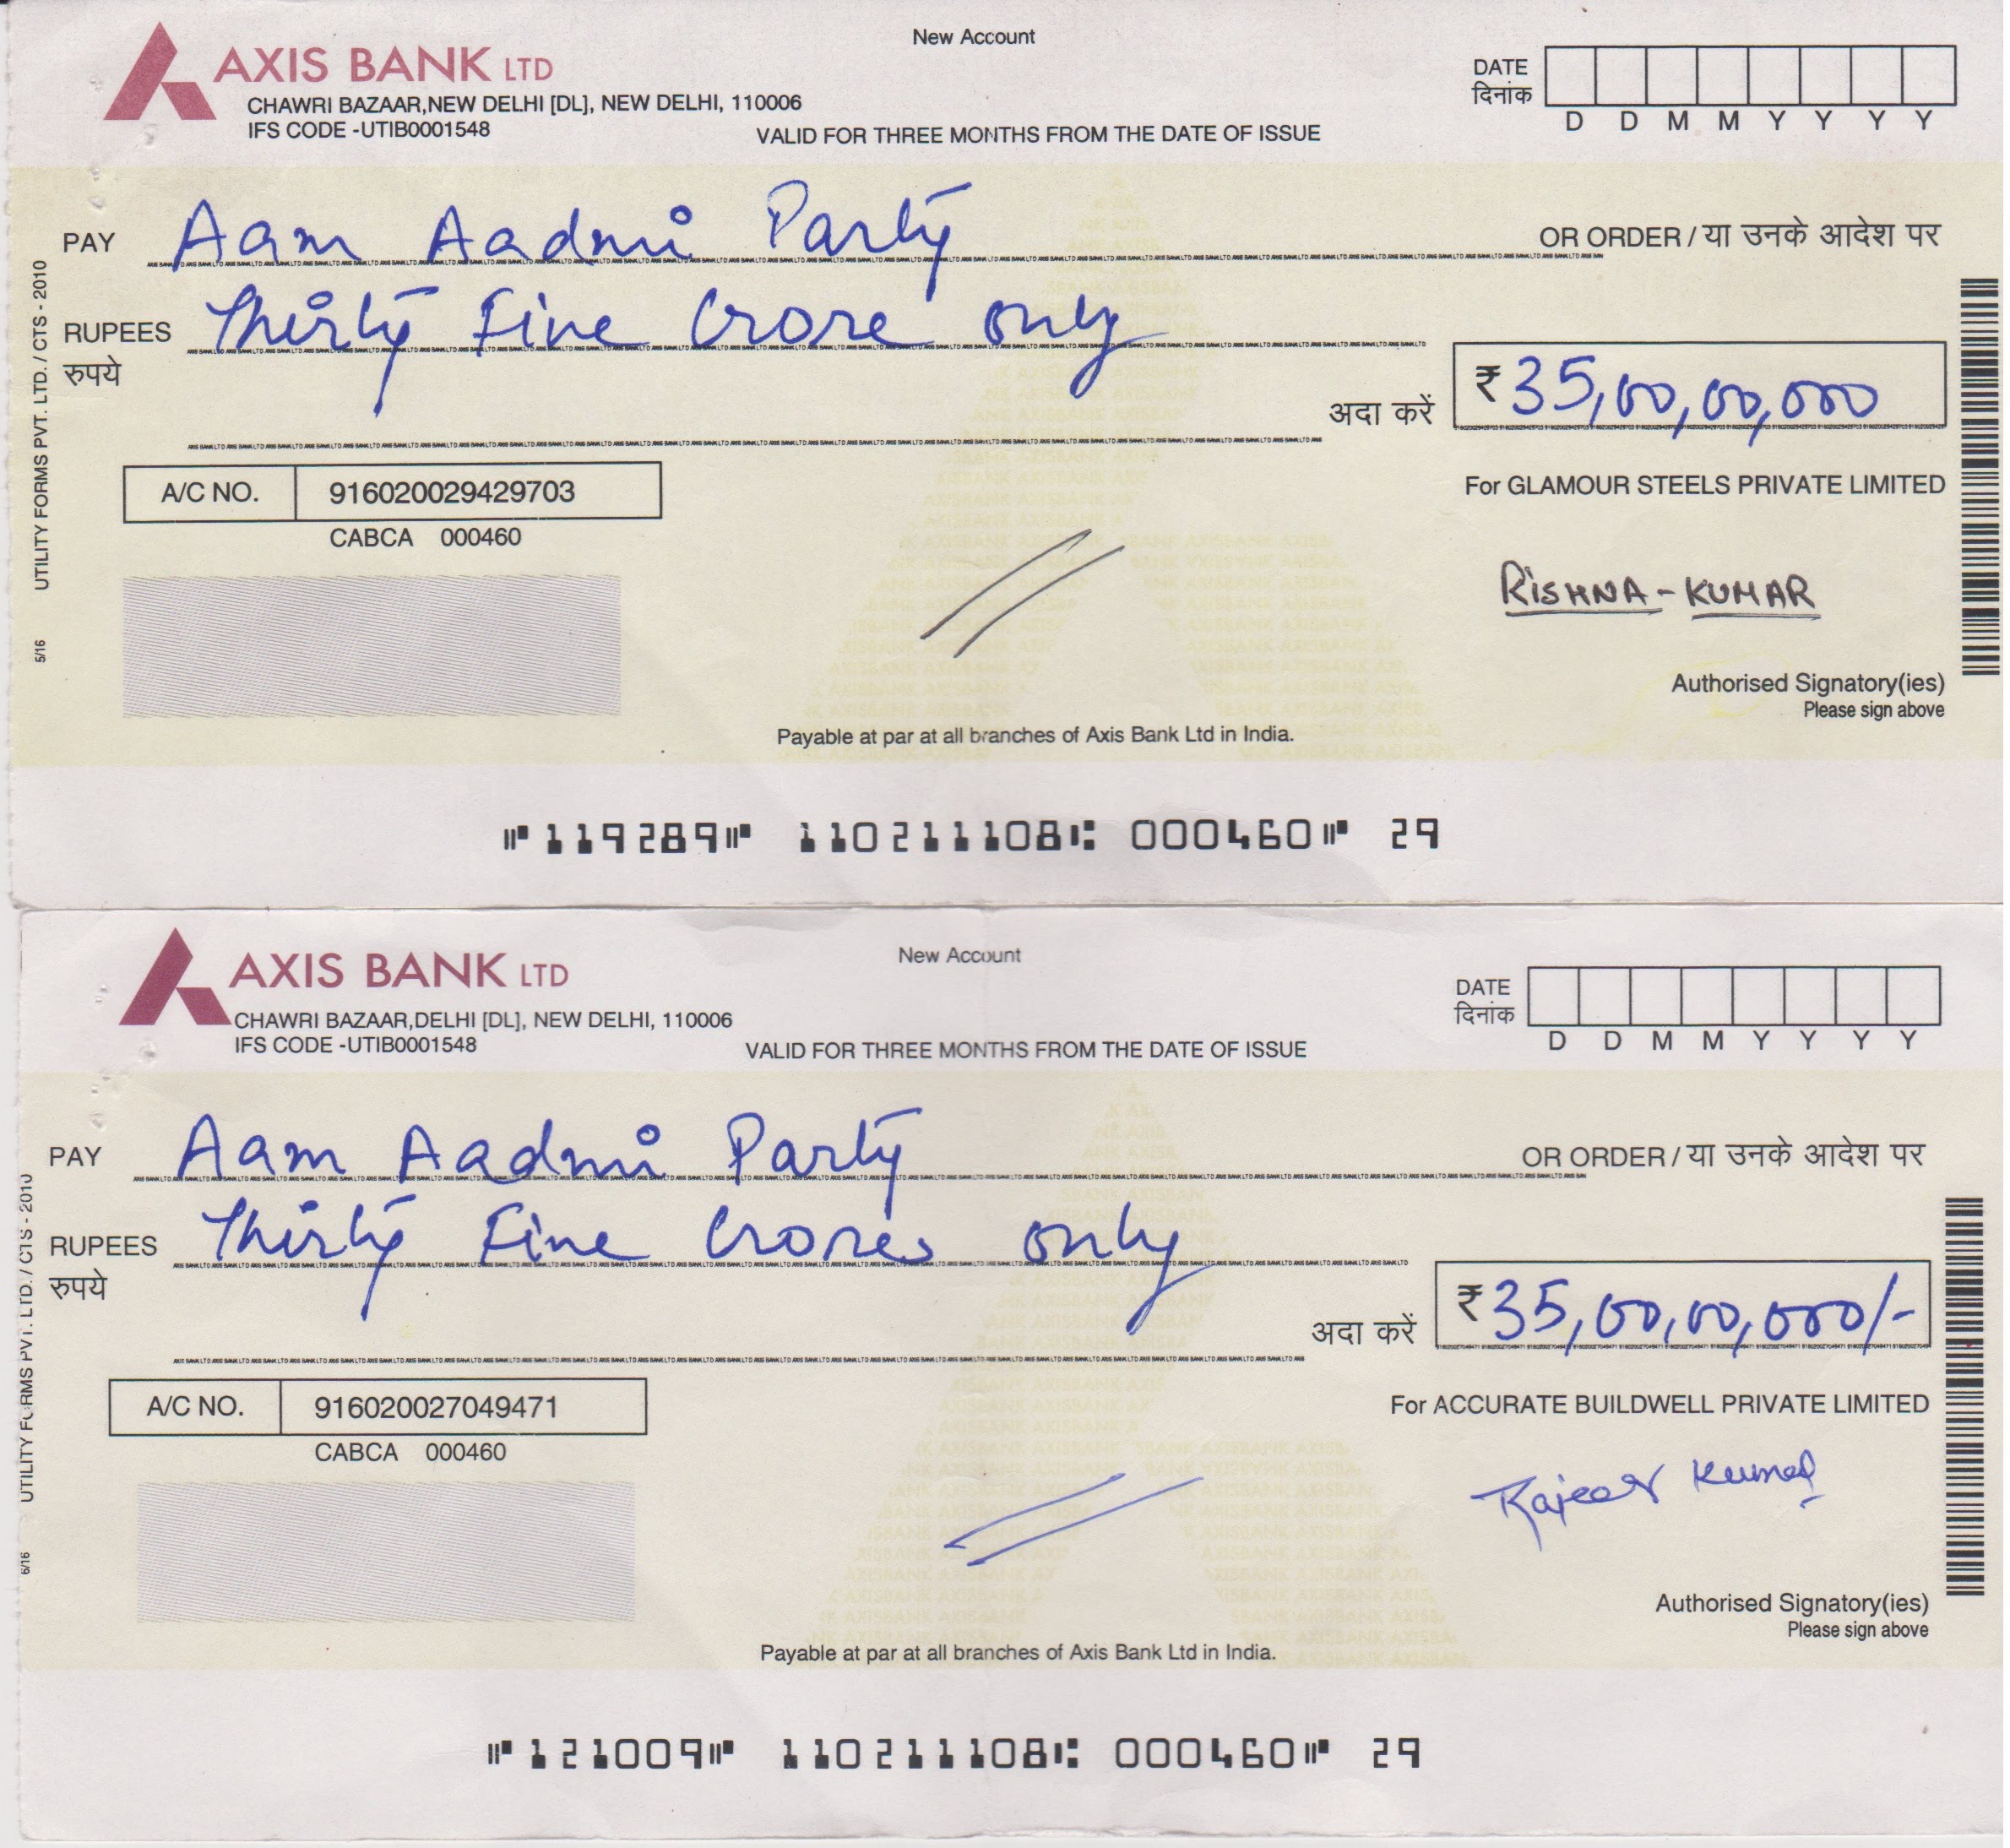 AXIS BANK LTD
New Account
CHAWRI BAZAAR,NEW DELHI [DL], NEW DELHI, 110006
IFS CODE -UTIB0001548
VALID FOR THREE MONTHS FROM THE DATE OF ISSUE
DATE
दिनांक
D D M M Y Y Y Y
PAY Aam Aadmi Party OR ORDER / या उनके आदेश पर
RUPEES Thirty Five Crore only
रुपये
अदा करें ₹ 35,00,00,000
A/C NO. 916020029429703
CABCA 000460
For GLAMOUR STEELS PRIVATE LIMITED
RISHNA - KUMAR
Authorised Signatory(ies)
Please sign above
Payable at par at all branches of Axis Bank Ltd in India.
UTILITY FORMS PVT. LTD. / CTS - 2010
5/16
⑈119289⑈ 110211108⑆ 000460⑈ 29
AXIS BANK LTD
New Account
CHAWRI BAZAAR,DELHI [DL], NEW DELHI, 110006
IFS CODE -UTIB0001548
VALID FOR THREE MONTHS FROM THE DATE OF ISSUE
DATE
दिनांक
D D M M Y Y Y Y
PAY Aam Aadmi Party OR ORDER / या उनके आदेश पर
RUPEES Thirty Five Crores only
रुपये
अदा करें ₹ 35,00,00,000/-
A/C NO. 916020027049471
CABCA 000460
For ACCURATE BUILDWELL PRIVATE LIMITED
Kumar
Authorised Signatory(ies)
Please sign above
Payable at par at all branches of Axis Bank Ltd in India.
UTILITY FORMS PVT. LTD. / CTS - 2010
6/16
⑈121009⑈ 110211108⑆ 000460⑈ 29